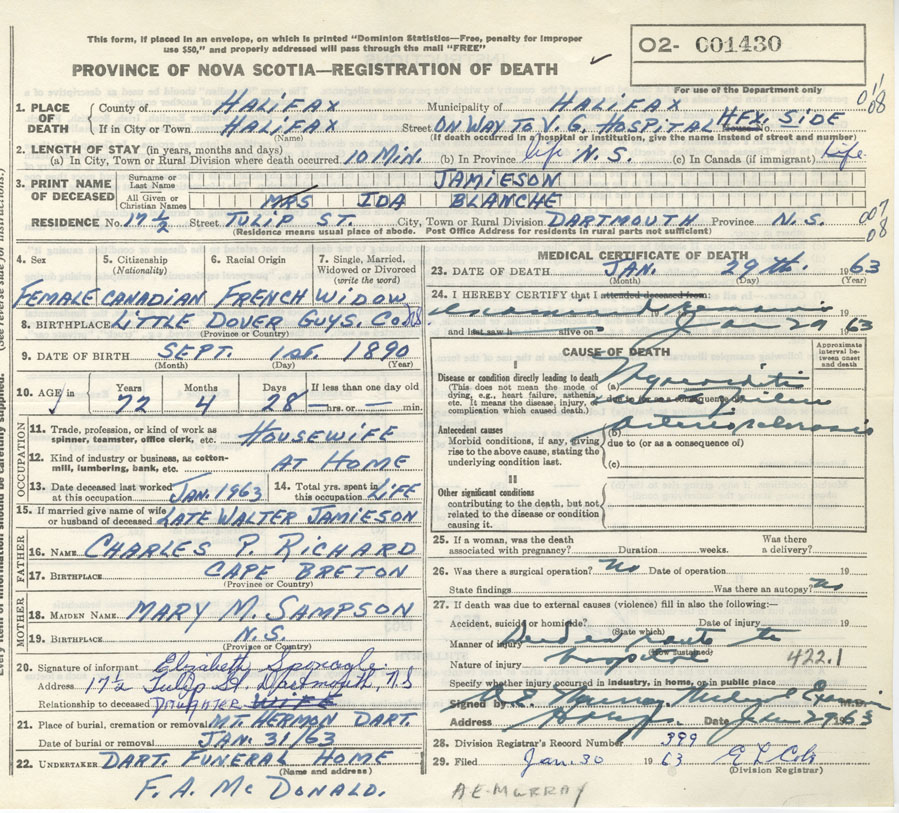 This form, if placed in an envelope, on which is printed "Dominion Statistics—Free, penalty for improper
use $50," and properly addressed will pass through the mail "FREE"
PROVINCE OF NOVA SCOTIA—REGISTRATION OF DEATH
O2- 001430
For use of the Department only
01
08
1. PLACE OF DEATH
County of HALIFAX Municipality of HALIFAX
If in City or Town HALIFAX Street ON WAY TO V. G. HOSPITAL HFX. SIDE
(Name) (If death occurred in a hospital or institution, give the name instead of street and number)
2. LENGTH OF STAY (in years, months and days)
(a) In City, Town or Rural Division where death occurred 10 MIN. (b) In Province life N. S. (c) In Canada (if immigrant) Life
3. PRINT NAME OF DECEASED
Surname or Last Name JAMIESON
All Given or Christian Names MRS IDA BLANCHE
RESIDENCE No. 17 1/2 Street TULIP ST. City, Town or Rural Division DARTMOUTH Province N. S.
007
08
(Residence means usual place of abode. Post Office Address for residents in rural parts not sufficient)
4. Sex 5. Citizenship (Nationality) 6. Racial Origin 7. Single, Married, Widowed or Divorced (write the word)
FEMALE CANADIAN FRENCH WIDOW
8. BIRTHPLACE LITTLE DOVER GUYS. CO. NS
(Province or Country)
9. DATE OF BIRTH SEPT. 1st. 1890
(Month) (Day) (Year)
10. AGE in Years Months Days If less than one day old
72 4 28 — hrs. or — min.
OCCUPATION
11. Trade, profession, or kind of work as spinner, teamster, office clerk, etc. HOUSEWIFE
12. Kind of industry or business, as cotton-mill, lumbering, bank, etc. AT HOME
13. Date deceased last worked at this occupation JAN. 1963 14. Total yrs. spent in this occupation LIFE
15. If married give name of wife or husband of deceased LATE WALTER JAMIESON
FATHER
16. NAME CHARLES P. RICHARD
17. BIRTHPLACE CAPE BRETON
(Province or Country)
MOTHER
18. MAIDEN NAME MARY M. SAMPSON
19. BIRTHPLACE N.S.
(Province or Country)
20. Signature of informant Elizabeth
Address 17 1/2 Tulip St. Dartmouth, N.S
Relationship to deceased DAUGHTER WIFE
21. Place of burial, cremation or removal MT. HERMON DART.
Date of burial or removal JAN. 31/63
22. UNDERTAKER DART. FUNERAL HOME
(Name and address)
F. A. MC DONALD.
MEDICAL CERTIFICATE OF DEATH
23. DATE OF DEATH JAN. 29th. 1963
(Month) (Day) (Year)
24. I HEREBY CERTIFY that I attended deceased from:
19
and last saw h alive on Jan 29 1963
CAUSE OF DEATH
Approximate interval between onset and death
I
Disease or condition directly leading to death
(This does not mean the mode of dying, e.g., heart failure, asthenia, etc. It means the disease, injury, or complication which caused death.)
(a) Myocarditis
due to (or as a consequence of)
Antecedent causes
Morbid conditions, if any, giving rise to the above cause, stating the underlying condition last.
(b) Arteriosclerosis
due to (or as a consequence of)
(c)
II
Other significant conditions
contributing to the death, but not related to the disease or condition causing it.
25. If a woman, was the death associated with pregnancy? Duration weeks. Was there a delivery?
26. Was there a surgical operation? No Date of operation 19
State findings Was there an autopsy? No
27. If death was due to external causes (violence) fill in also the following:—
Accident, suicide or homicide? Date of injury 19
(State which)
Manner of injury Dead en route to
(How sustained)
Nature of injury hospital 422.1
Specify whether injury occurred in industry, in home, or in public place
Signed by Medical M.D.
Address Date Jan 29 1963
28. Division Registrar's Record Number 399
29. Filed Jan. 30 1963
(Division Registrar)
A E. MURRAY